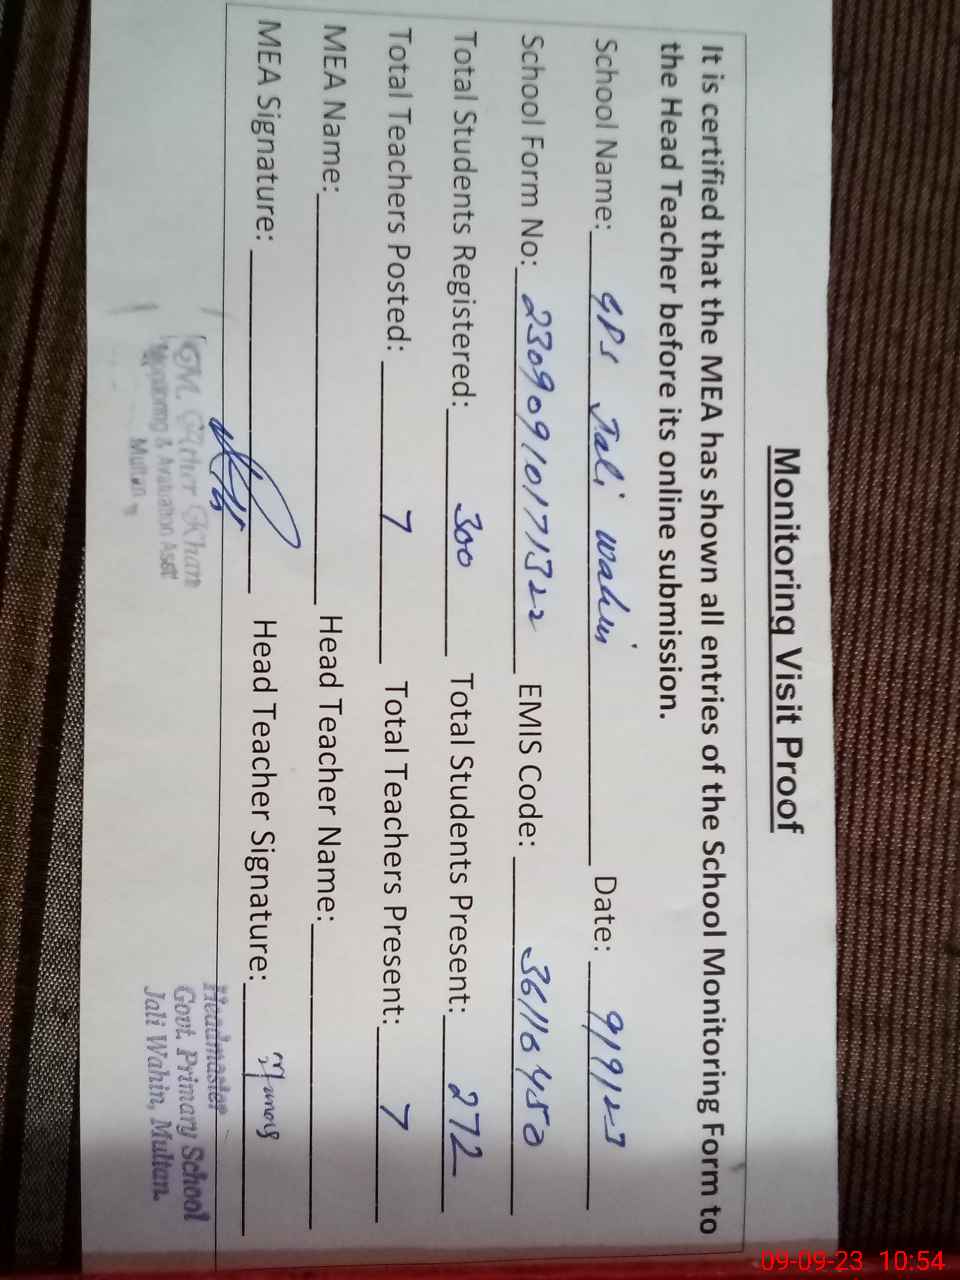 Monitoring Visit Proof
It is certified that the MEA has shown all entries of the School Monitoring Form to
the Head Teacher before its online submission.
School Name: GPS Jali wahin Date: 9/9/23
School Form No: 23090910171322 EMIS Code: 36116450
Total Students Registered: 300 Total Students Present: 272
Total Teachers Posted: 7 Total Teachers Present: 7
MEA Name: Head Teacher Name:
MEA Signature: Head Teacher Signature:
M. Khan
Monitoring & Evaluation Asstt
Multan
Headmaster
Govt. Primary School
Jali Wahin, Multan.
09-09-23 10:54